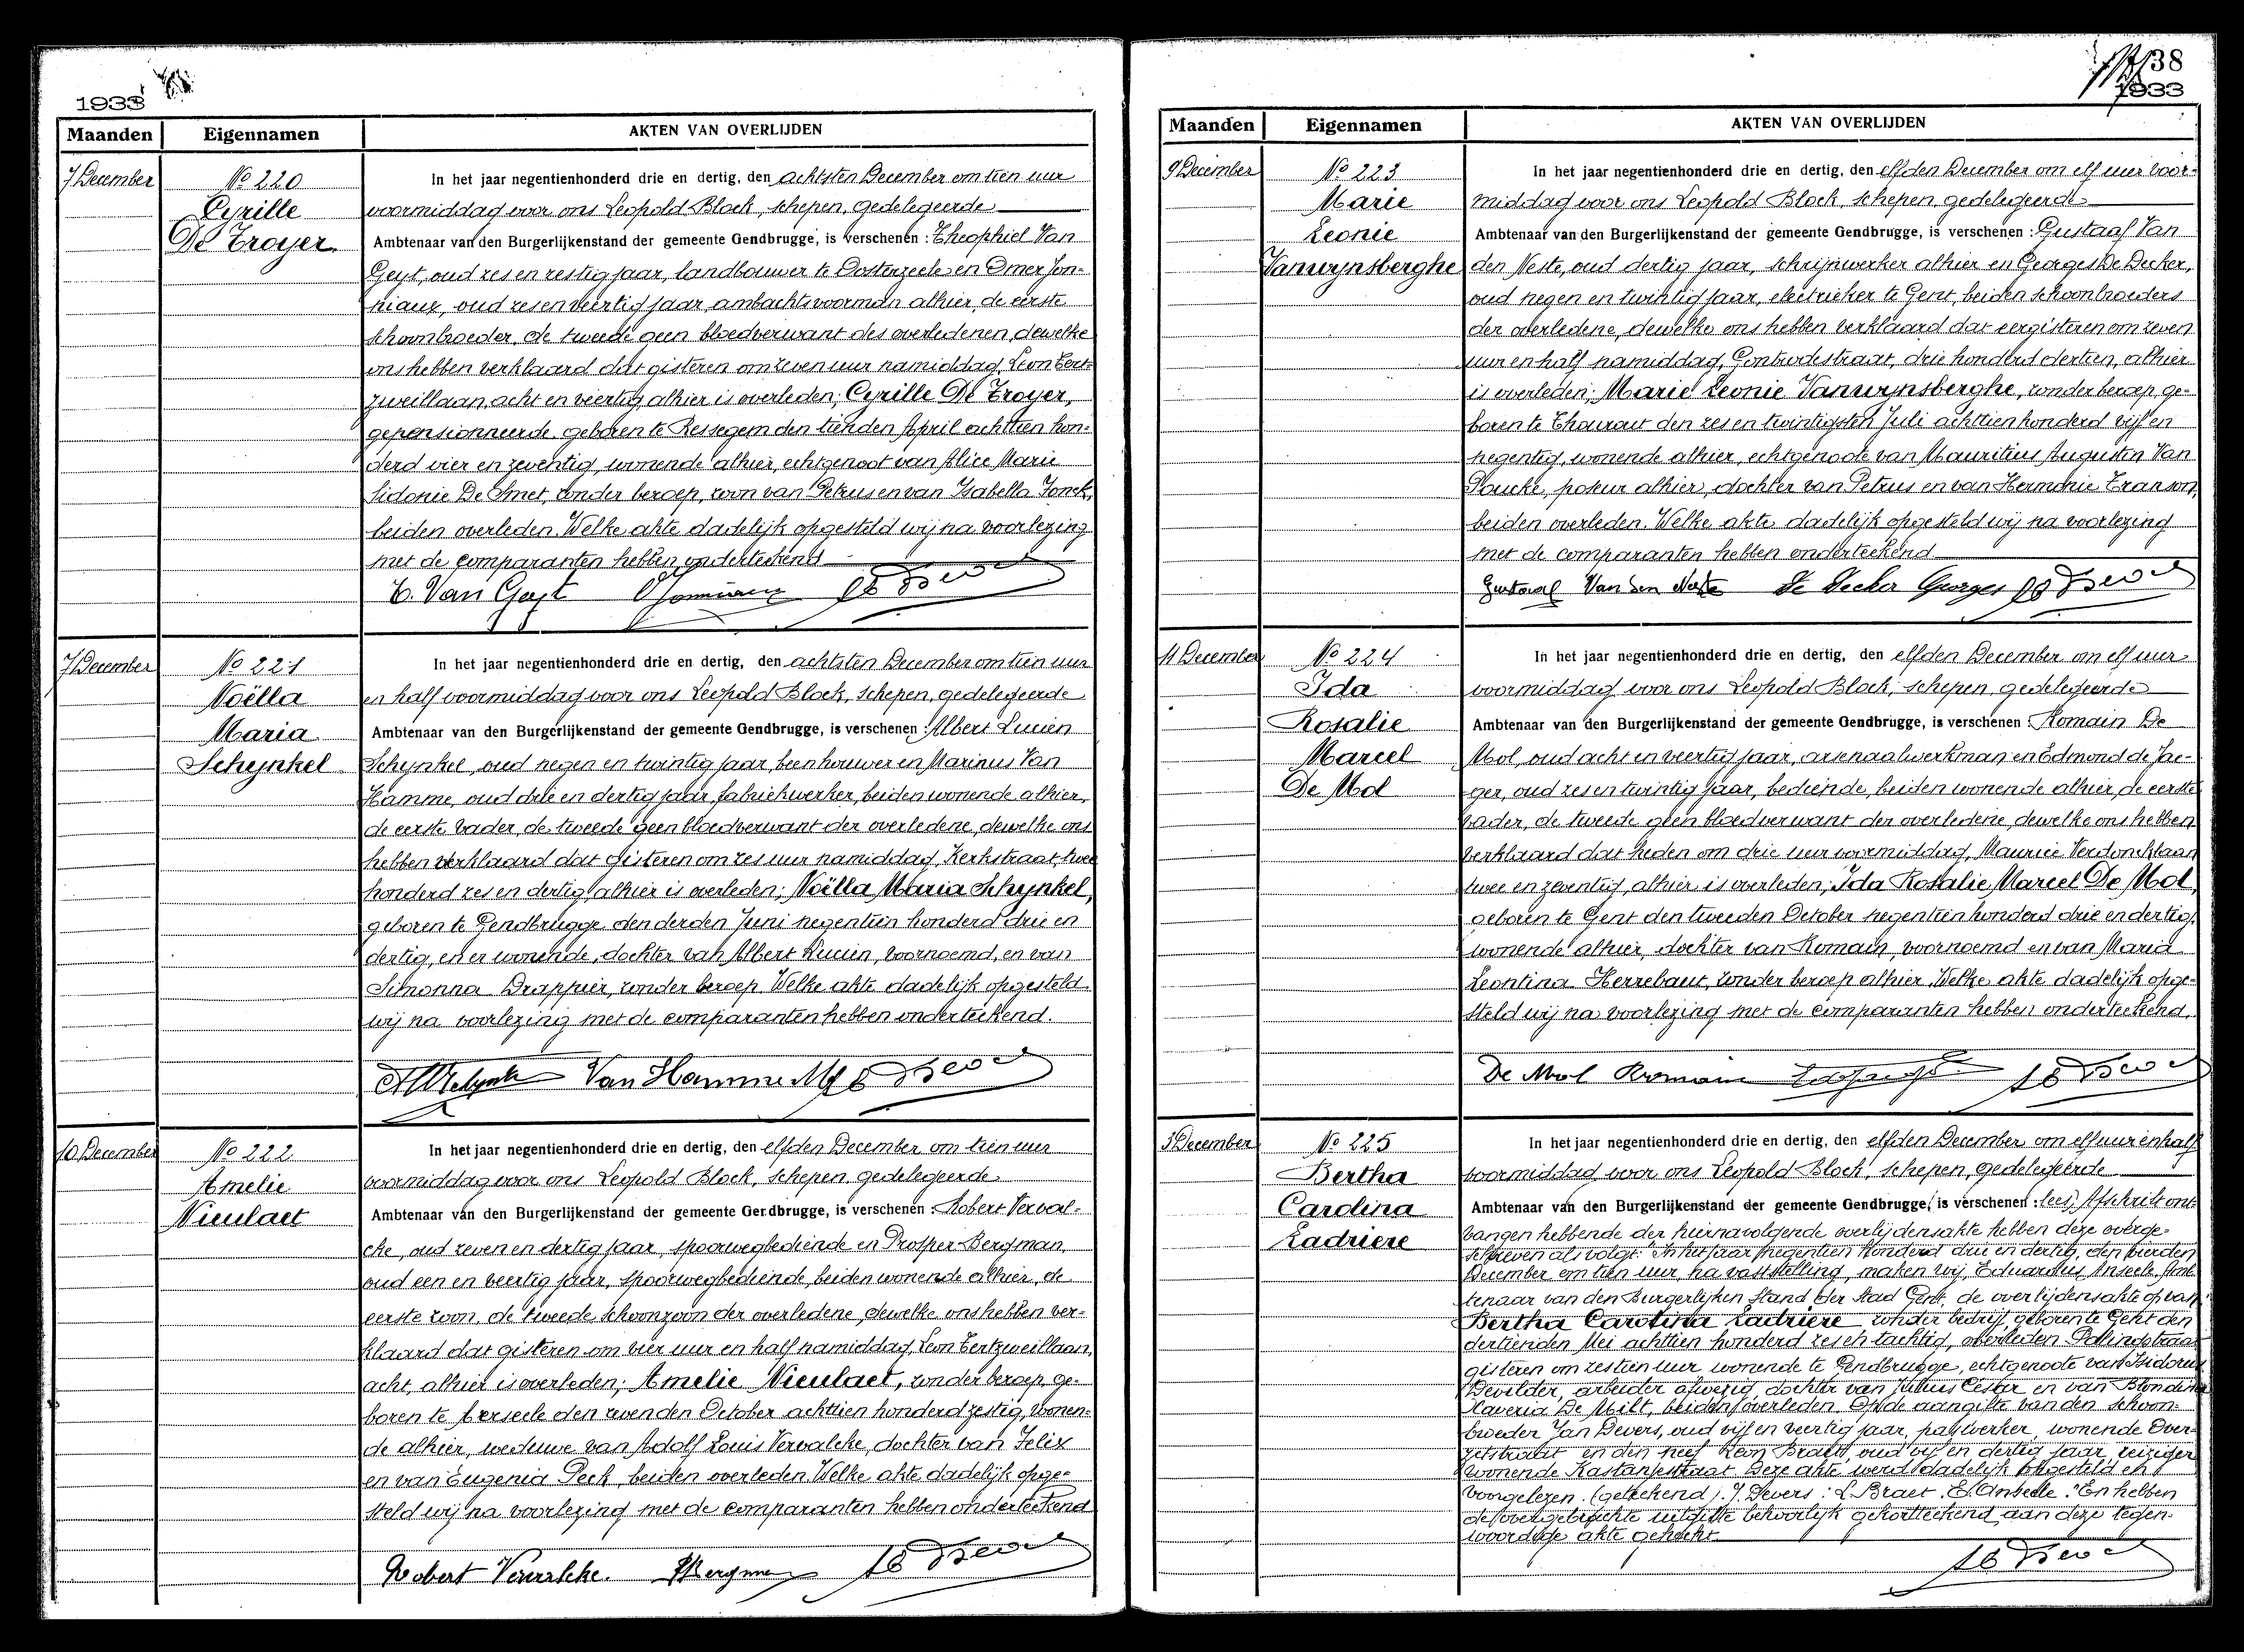 1933
Maanden Eigennamen AKTEN VAN OVERLIJDEN
7 December
No 220
Cyrille
De Troyer
In het jaar negentienhonderd drie en dertig, den achtsten December om tien uur
voormiddag voor ons Leopold Block, schepen, gedelegeerde
Ambtenaar van den Burgerlijkenstand der gemeente Gendbrugge, is verschenen : Theophiel Van
Geyt, oud zes en zestig jaar, landbouwer te Oosterzeele en Omer Jon-
niaux, oud zes en veertig jaar, ambachtsvoorman alhier, de eerste
schoonbroeder, de tweede geen bloedverwant des overledenen, dewelke
ons hebben verklaard dat gisteren om zeven uur namiddag, Leon Tert-
zweillaan, acht en veertig, alhier is overleden; Cyrille De Troyer,
gepensionneerde, geboren te Ressegem den tienden April achttien hon-
derd vier en zeventig, wonende alhier, echtgenoot van Alice Marie
Sidonie De Smet, zonder beroep, zoon van Petrus en van Isabella Jonck,
beiden overleden. Welke akte dadelijk opgesteld wij na voorlezing
met de comparanten hebben onderteekend
T. Van Geyt
7 December
No 221
Noëlla
Maria
Schynkel
In het jaar negentienhonderd drie en dertig, den achtsten December om tien uur
en half voormiddag voor ons Leopold Block, schepen, gedelegeerde
Ambtenaar van den Burgerlijkenstand der gemeente Gendbrugge, is verschenen : Albert Lucien
Schynkel, oud negen en twintig jaar, beenhouwer en Marinus Van
Hamme, oud drie en dertig jaar, fabriekwerker, beiden wonende alhier,
de eerste vader, de tweede geen bloedverwant der overledene, dewelke ons
hebben verklaard dat gisteren om zes uur namiddag, Kerkstraat, twee
honderd zes en dertig, alhier is overleden; Noëlla Maria Schynkel,
geboren te Gendbrugge den derden Juni negentien honderd drie en
dertig, en er wonende, dochter van Albert Lucien, voornoemd, en van
Simonna Drappier, zonder beroep. Welke akte dadelijk opgesteld
wij na voorlezing met de comparanten hebben onderteekend.
Van Hamme M
10 December
No 222
Amelie
Nieulaet
In het jaar negentienhonderd drie en dertig, den elfden December om tien uur
voormiddag voor ons Leopold Block, schepen, gedelegeerde
Ambtenaar van den Burgerlijkenstand der gemeente Gendbrugge, is verschenen : Robert Verval-
cke, oud zeven en dertig jaar, spoorwegbediende en Prosper Bergman,
oud een en veertig jaar, spoorwegbediende, beiden wonende alhier, de
eerste zoon, de tweede schoonzoon der overledene, dewelke ons hebben ver-
klaard dat gisteren om vier uur en half namiddag, Leon Tertzweillaan,
acht, alhier is overleden; Amelie Nieulaet, zonder beroep, ge-
boren te Lerseele den zevenden October achttien honderd zestig, wonen-
de alhier, weduwe van Adolf Louis Vervalcke, dochter van Felix
en van Eugenia Peck, beiden overleden. Welke akte dadelijk opge-
steld wij na voorlezing met de comparanten hebben onderteekend
Robert Vervalcke. Bergman
38
1933
Maanden Eigennamen AKTEN VAN OVERLIJDEN
9 December
No 223
Marie
Leonie
Vanwynsberghe
In het jaar negentienhonderd drie en dertig, den elfden December om elf uur voor-
middag voor ons Leopold Block, schepen, gedelegeerde
Ambtenaar van den Burgerlijkenstand der gemeente Gendbrugge, is verschenen : Gustaaf Van
den Neste, oud dertig jaar, schrijnwerker alhier en Georges De Decker,
oud negen en twintig jaar, electrieker te Gent, beiden schoonbroeders
der overledene, dewelke ons hebben verklaard dat eergisteren om zeven
uur en half namiddag, Gontrodestraat, drie honderd dertien, alhier
is overleden; Marie Leonie Vanwynsberghe, zonder beroep, ge-
boren te Thourout den zes en twintigsten Juli achttienhonderd vijf en
negentig, wonende alhier, echtgenoote van Mauritius Augustin Van
Paucke, poseur alhier, dochter van Petrus en van Hermonie Transon,
beiden overleden. Welke akte dadelijk opgesteld wij na voorlezing
met de comparanten hebben onderteekend
Gustaaf Van den Neste De Decker Georges
11 December
No 224
Ida
Rosalie
Marcel
De Mol
In het jaar negentienhonderd drie en dertig, den elfden December om elf uur
voormiddag voor ons Leopold Block, schepen, gedelegeerde
Ambtenaar van den Burgerlijkenstand der gemeente Gendbrugge, is verschenen : Romain De
Mol, oud acht en veertig jaar, arsenaalwerkman en Edmond de Jae-
ger, oud zes en twintig jaar, bediende, beiden wonende alhier, de eerste
vader, de tweede geen bloedverwant der overledene, dewelke ons hebben
verklaard dat heden om drie uur voormiddag, Maurice Verdoncklaan
twee en zeventig, alhier is overleden; Ida Rosalie Marcel De Mol,
geboren te Gent den tweeden October negentien honderd drie en dertig,
wonende alhier, dochter van Romain, voornoemd en van Maria
Leontina Herrebaut, zonder beroep alhier. Welke akte dadelijk opge-
steld wij na voorlezing met de comparanten hebben onderteekend.
De Mol Romain
3 December
No 225
Bertha
Carolina
Ladriere
In het jaar negentienhonderd drie en dertig, den elfden December om elf uur en half
voormiddag voor ons Leopold Block, schepen, gedelegeerde
Ambtenaar van den Burgerlijkenstand der gemeente Gendbrugge, is verschenen : lees, Afschrift ont-
vangen hebbende der hiernavolgende overlijdensakte hebben deze overge-
schreven als volgt: "In het jaar negentien honderd drie en dertig, den vierden
December om tien uur, na vaststelling, maken wij, Eduardus Anseele, Amb-
tenaar van den Burgerlijken Stand der Stad Gent, de overlijdensakte op van
Bertha Carolina Ladriere zonder bedrijf, geboren te Gent den
dertienden Mei achttien honderd zes en tachtig, overleden Palingstraat
gisteren om zestien uur wonende te Gendbrugge, echtgenoote van Isidorus
Devilder, arbeider afwezig, dochter van Julius Cesar en van Blondina
Xaveria De Milt, beiden overleden. Op de aangifte van den schoon-
broeder Jan Devers, oud vijf en veertig jaar, paswerker, wonende Over-
zetstraat en den neef Leon Braet, oud vijf en dertig jaar reiziger
wonende Kastanjestraat. Deze akte werd dadelijk opgesteld en
voorgelezen. (geteekend) : J. Devers : L. Braet. E. Anseele." En hebben
de overgebrachte uitgifte behoorlijk gekortteekend aan deze tegen-
woordige akte gehecht